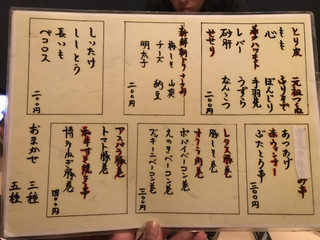 とり皮
もも
心
レバー
砂肝
せせり
元祖つくね
ぼんじり
手羽先
うずら
なんこつ
二〇〇円
梅しそ
チーズ
明太子
山葵
納豆
二〇〇円
しいたけ
ししとう
長いも
ペコロス
二〇〇円
あつあげ
赤ウィンナー
ぶたとろ串
レタス豚巻
豚しそ巻
オクラ肉巻
ポパイベーコン巻
えのきベーコン巻
ズッキーニベーコン巻
三〇〇円
アスパラ豚巻
トマト豚巻
四〇〇円
おまかせ
三種
五種